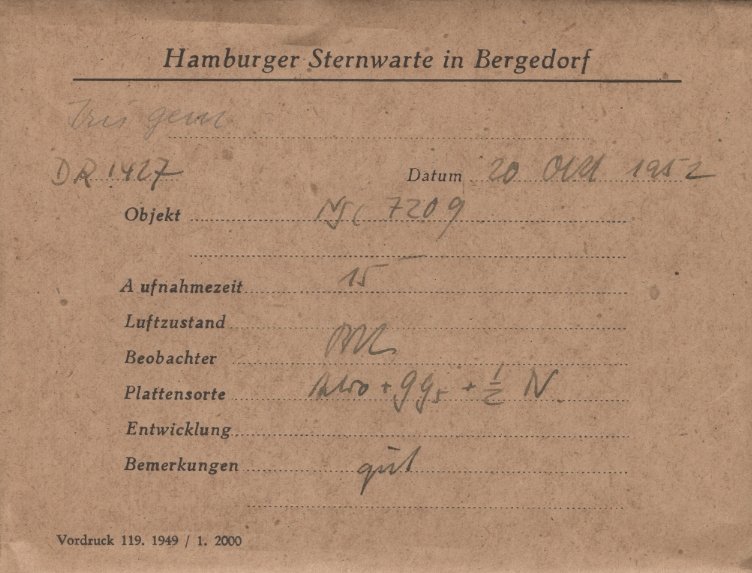 Hamburger Sternwarte in Bergedorf
Iris gem
DR 1427 Datum 20 Okt 1952
Objekt NGC 7209
Aufnahmezeit 15
Luftzustand
Beobachter
Plattensorte + gg5 + 1/2 N.
Entwicklung
Bemerkungen gut
Vordruck 119. 1949 / 1. 2000